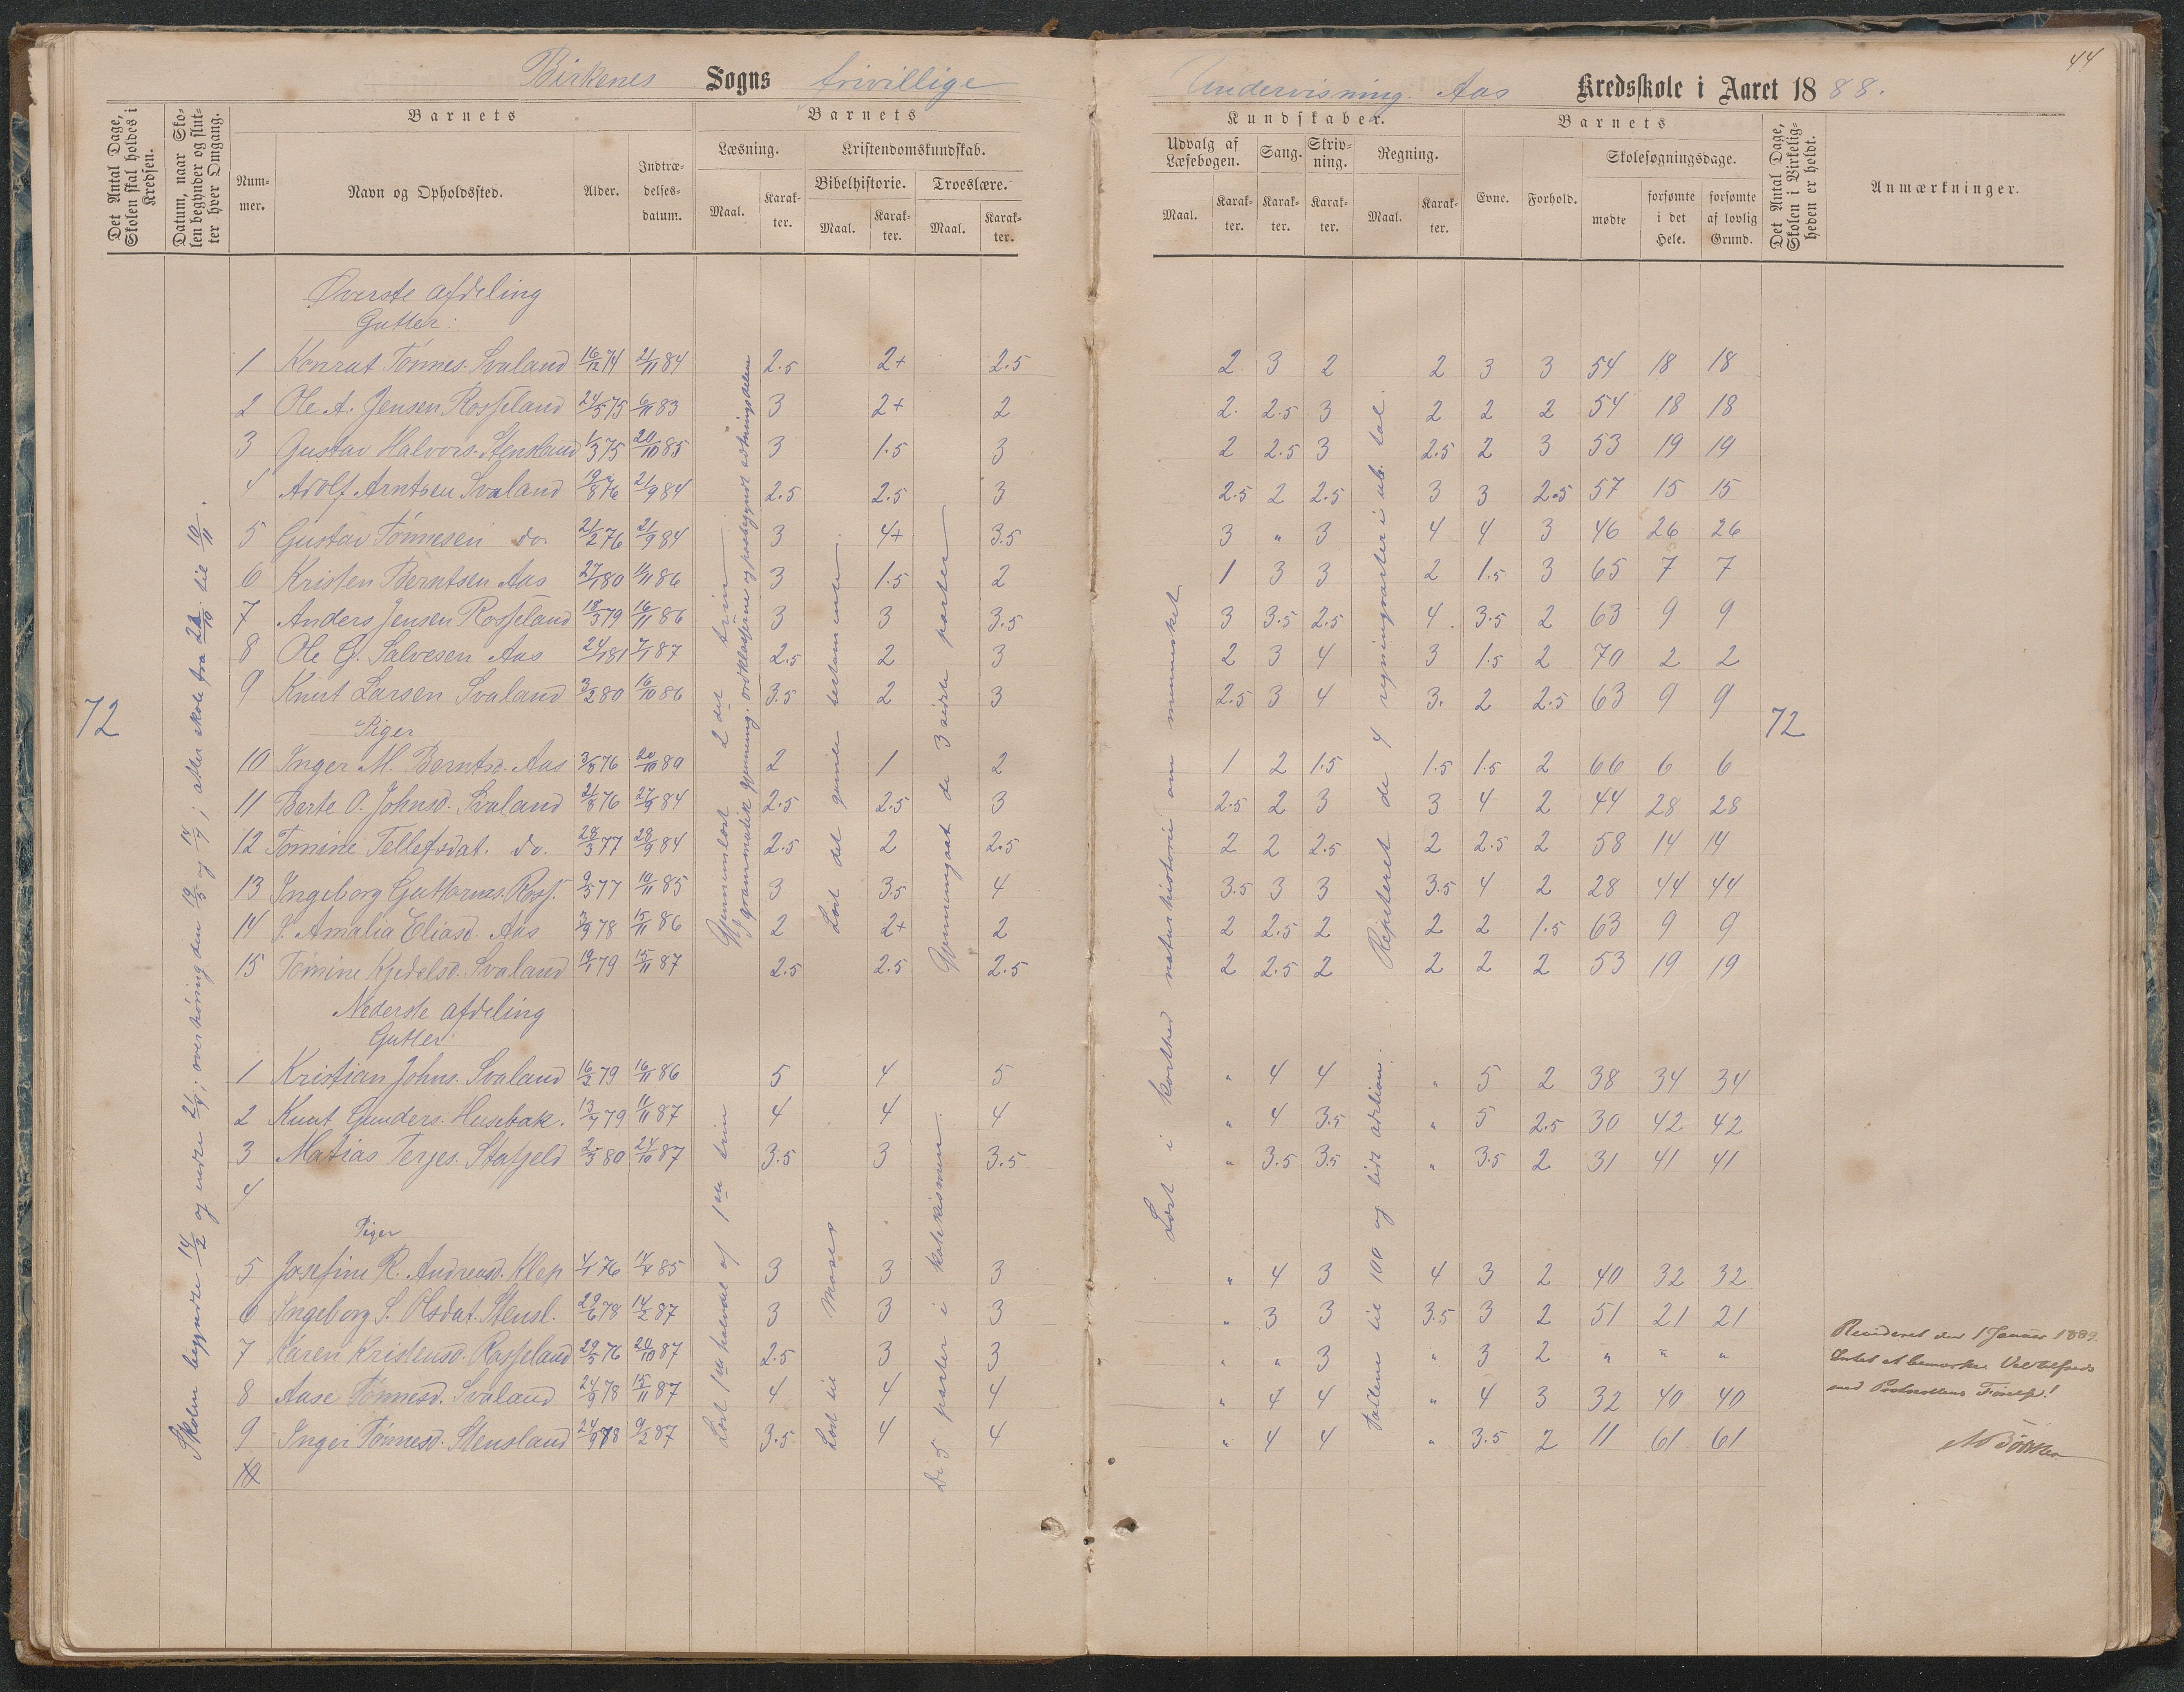 44
Birkenes Sogns frivillige
Undervisning Aas Kredsskole i Aaret 1888.
Det Antal Dage, Skolen skal holdes i Kredsen.
Datum, naar Skolen begynder og slutter hver Omgang.
Barnets
Nummer.
Navn og Opholdssted.
Alder.
Indtrædelsesdatum.
Barnets
Læsning.
Maal.
Karakter.
Kristendomskundskab.
Bibelhistorie.
Maal.
Karakter.
Troeslære.
Maal.
Karakter.
Kundskaber.
Udvalg af Læsebogen.
Maal.
Karakter.
Sang.
Karakter.
Skrivning.
Karakter.
Regning.
Maal.
Karakter.
Barnets
Evne.
Forhold.
Skolesøgningsdage.
mødte
forsømte i det Hele.
forsømte af lovlig Grund.
Det Antal Dage, Skolen i Virkeligheden er holdt.
Anmærkninger.
Øverste afdeling
Gutter:
1 Konrat Tønnes. Svaland 16/12 74 21/11 84 2.5 2+ 2.5 2 3 2 2 3 3 54 18 18
2 Ole A. Jensen Rosseland 24/5 75 6/11 83 3 2+ 2 2. 2.5 3 2 2 2 54 18 18
3 Gustav Halvors. Stensland 1/3 75 20/10 85 3 1.5 3 2 2.5 3 2.5 2 3 53 19 19
4 Adolf Arntsen Svaland 19/8 76 21/9 84 2.5 2.5 3 2.5 2 2.5 3 3 2.5 57 15 15
5 Gustav Tønnesen do. 21/2 76 21/9 84 3 4+ 3.5 3 " 3 4 4 3 46 26 26
6 Kristen Berntsen Aas 27/1 80 1/11 86 3 1.5 2 1 3 3 2 1.5 3 65 7 7
7 Anders Jensen Rosseland 18/3 79 16/11 86 3 3 3.5 3 3.5 2.5 4. 3.5 2 63 9 9
8 Ole G. Salvesen Aas 24/1 81 7/1 87 2.5 2 3 2 3 4 3 1.5 2 70 2 2
9 Knut Larsen Svaland 3/2 80 16/10 86 3.5 2 3 2.5 3 4 3. 2 2.5 63 9 9
72
72
Piger
10 Inger M. Berntsd. Aas 3/3 76 20/10 89 2 1 2 1 2 1.5 1.5 1.5 2 66 6 6
11 Berte O. Johnsd. Svaland 21/8 76 27/9 84 2.5 2.5 3 2.5 2 3 3 4 2 44 28 28
12 Tomine Tellefsdat. do. 28/3 77 28/9 84 2.5 2 2.5 2 2 2.5 2 2.5 2 58 14 14
13 Ingeborg Guttorms. Ross. 9/5 77 19/11 85 3 3.5 4 3.5 3 3 3.5 4 2 28 44 44
14 S. Amalia Eliasd. Aas 3/9 78 15/11 86 2 2+ 2 2 2.5 2 2 2 1.5 63 9 9
15 Tomine Kjedelsd. Svaland 19/1 79 15/11 87 2.5 2.5 2.5 2 2.5 2 2 2 2 53 19 19
Nederste afdeling
Gutter
1 Kristian Johns. Svaland 16/2 79 16/11 86 5 4 5 " 4 4 " 5 2 38 34 34
2 Knut Gunders. Husebak. 13/7 79 11/11 87 4 4 4 " 4 3.5 " 5 2.5 30 42 42
3 Matias Terjes. Stafjeld 2/3 80 24/10 87 3.5 3 3.5 " 3.5 3.5 " 3.5 2 31 41 41
4
Piger
5 Josefine R. Andreasd. Klep 4/1 76 14/4 85 3 3 3 " 4 3 4 3 2 40 32 32
6 Ingeborg S. Olsdat. Stensl. 29/6 78 14/2 87 3 3 3 " 3 3 3.5 3 2 51 21 21
7 Karen Kristensd. Rosseland 29/5 76 20/10 87 2.5 3 3 " " 3 " 3 2 " " "
8 Aase Tønnesd. Svaland 24/9 78 15/11 87 4 4 4 " 4 4 " 4 3 32 40 40
9 Inger Tønnesd. Stensland 24/9 78 9/2 87 3.5 4 4 " 4 4 " 3.5 2 11 61 61
10
Skolen begyndte 14/2 og endte 21/4; overhøring den 19/5 og 14/9; atter skole fra 22/10 til 10/11.
Gjennemlæst 2det trin
grammatik gjennemg. ordklasserne og paabegyndt sætningsdelene
Læst det gamle testamente.
Gjennemgaat de 3 sidste parter
Læst 1ste halvdel af 1ste trin
Læst til Moses
De 5 parter i katekismen.
Læst i korthed naturhistorie om mennesket
Repeteret de 4 regningsarter i ub. tal.
Tallene til 100 og lidt adition.
Revideret den 1 Januar 1889.
Intet at bemærke. Vel tilfreds
med Protocollens Førelse!